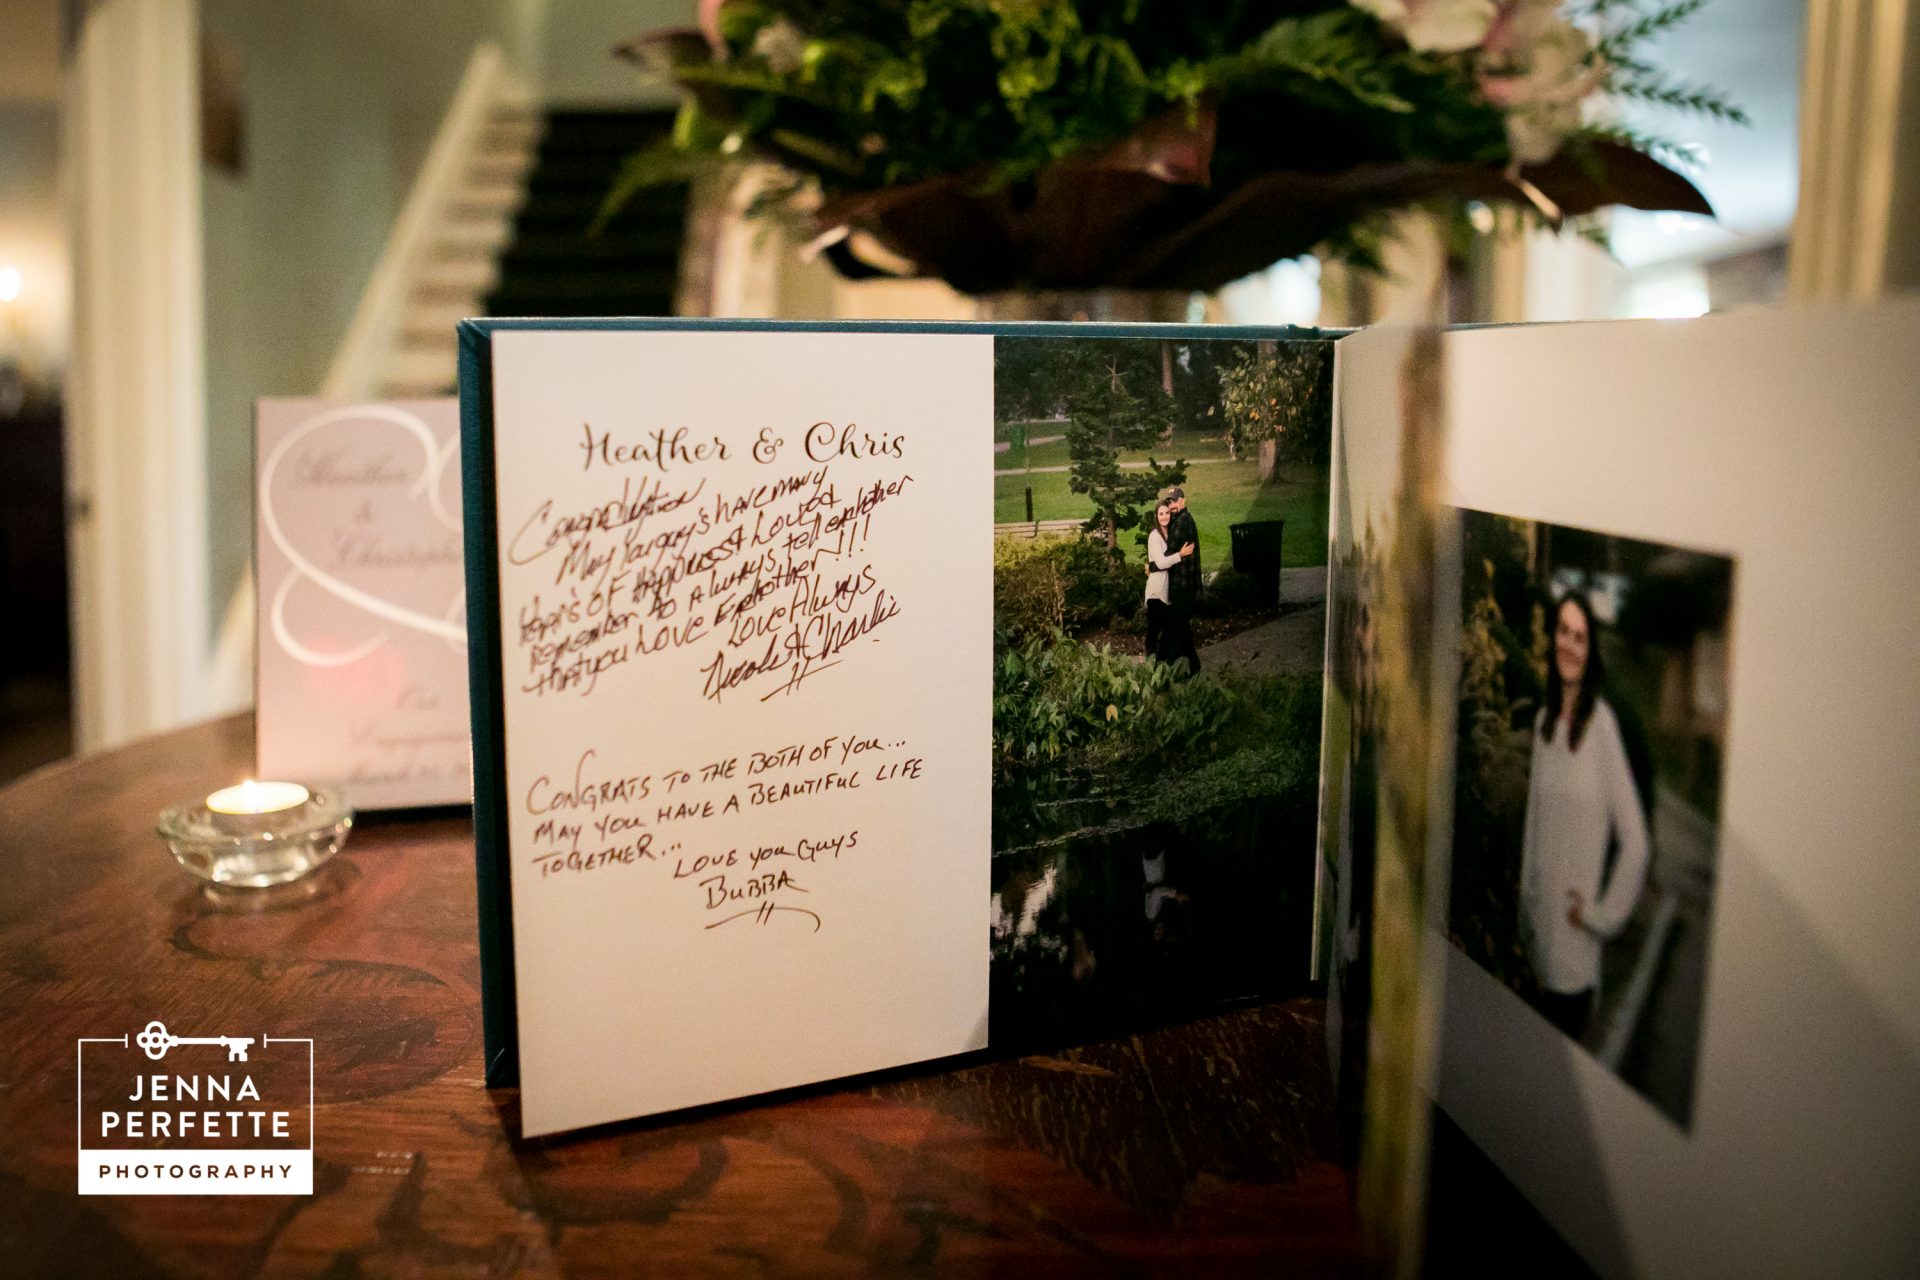 Heather & Chris
Congratulation
May You guy's have many
Year's OF Happiness & Loved
Remember to Always tell eachother
that you Love Eachother!!!
Love Always
Nicole & Charlie
CONGRATS TO THE BOTH OF YOU...
MAY YOU HAVE A BEAUTIFUL LIFE
TOGETHER...
LOVE YOU GUYS
BUBBA
Heather
&
Christopher
Our
Engagement
JENNA
PERFETTE
PHOTOGRAPHY